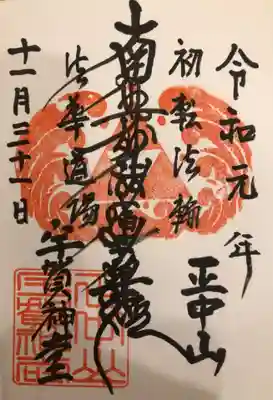 令和元年
正中山
初転法輪
南無妙法蓮華経
法華道場
宇賀神堂
十一月三十一日